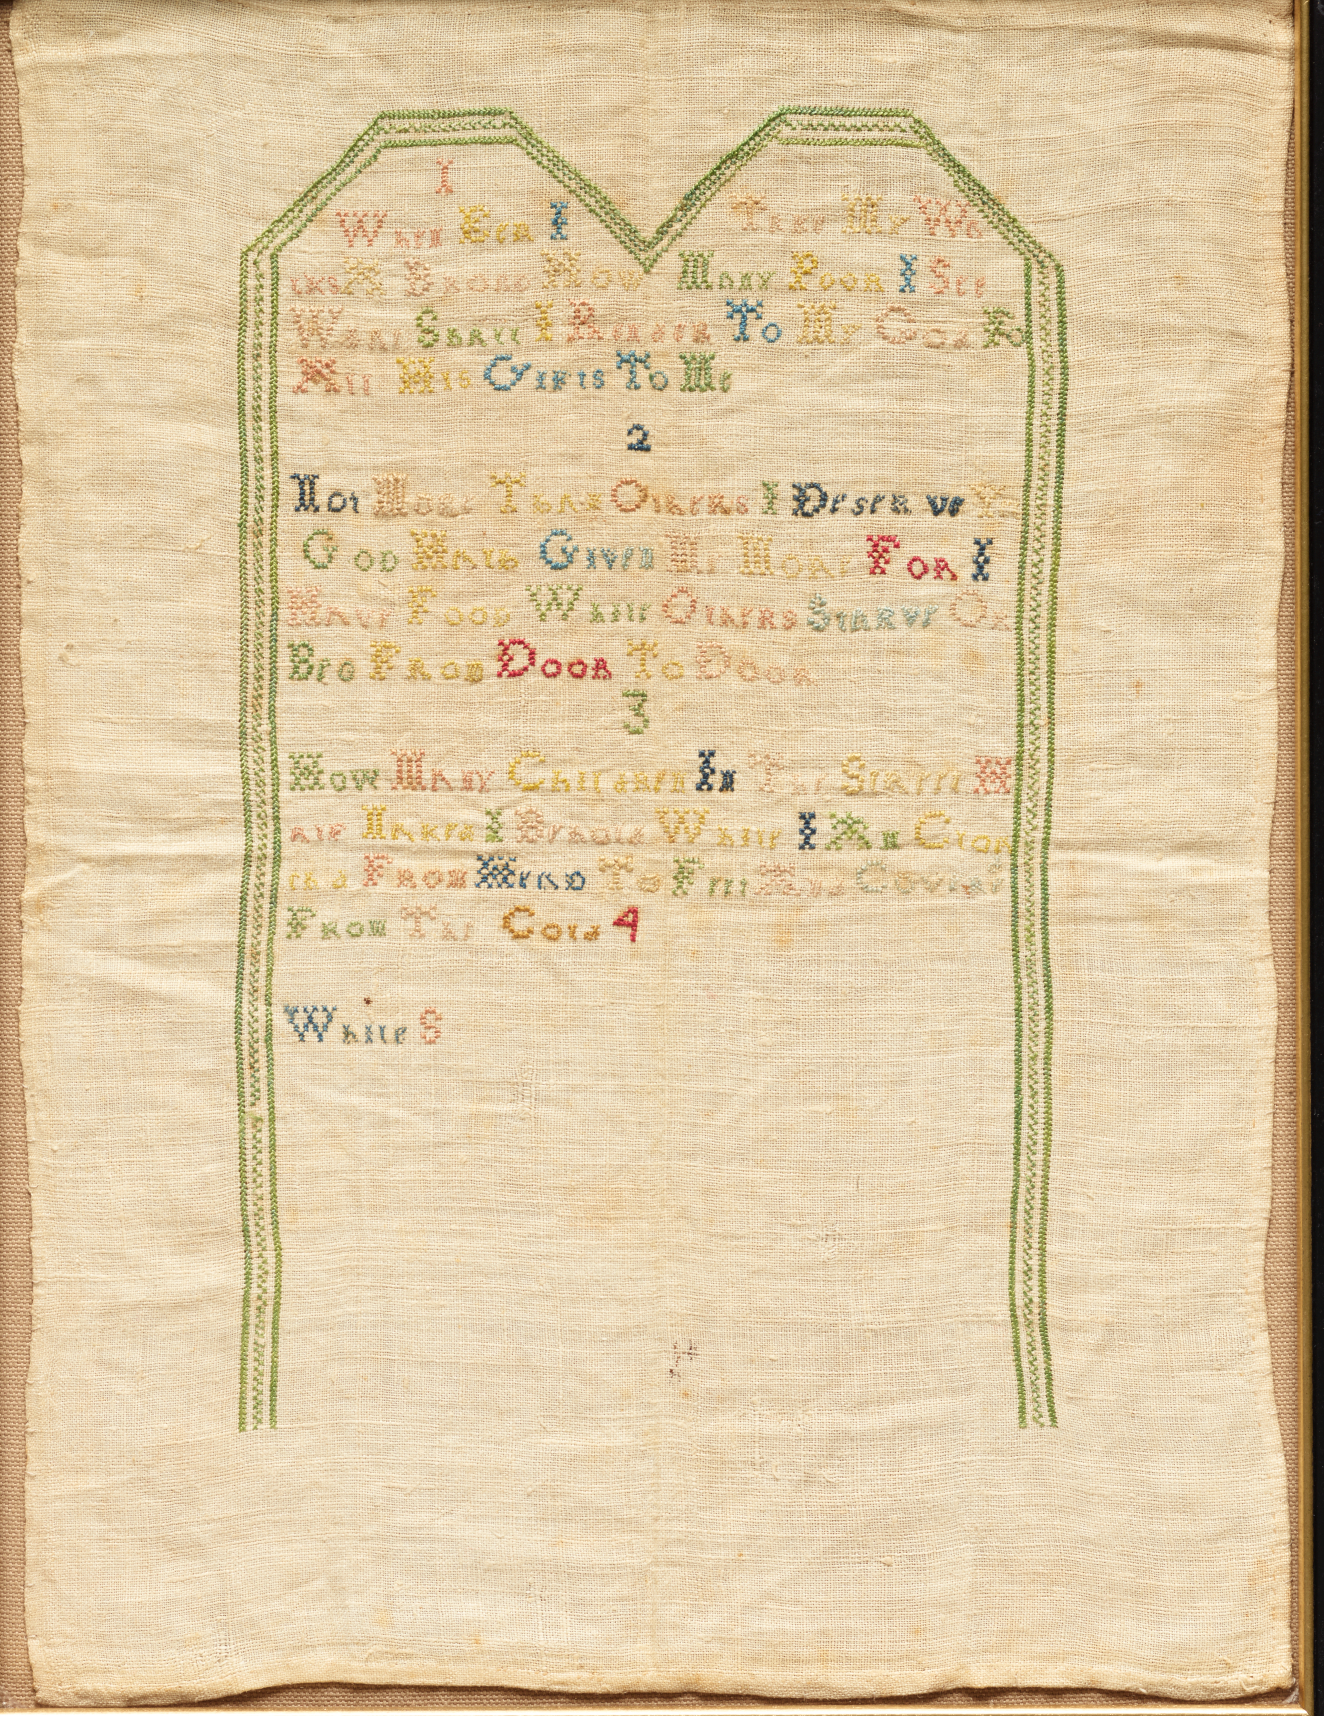 I
When Eer I Take My Wa
lks A Broad How Many Poor I See
What Shall I Render To My God F
All His Gifts To Me
2
Not More Than Others I Deserve Y
God Hath Given Me More For I
Have Food While Others Starve Or
Beg From Door To Door
3
How Many Children In The Street H
alf Naked I Behold While I Am Cloa
th'd From Head To Feet And Cover'd
From The Cold 4
While S